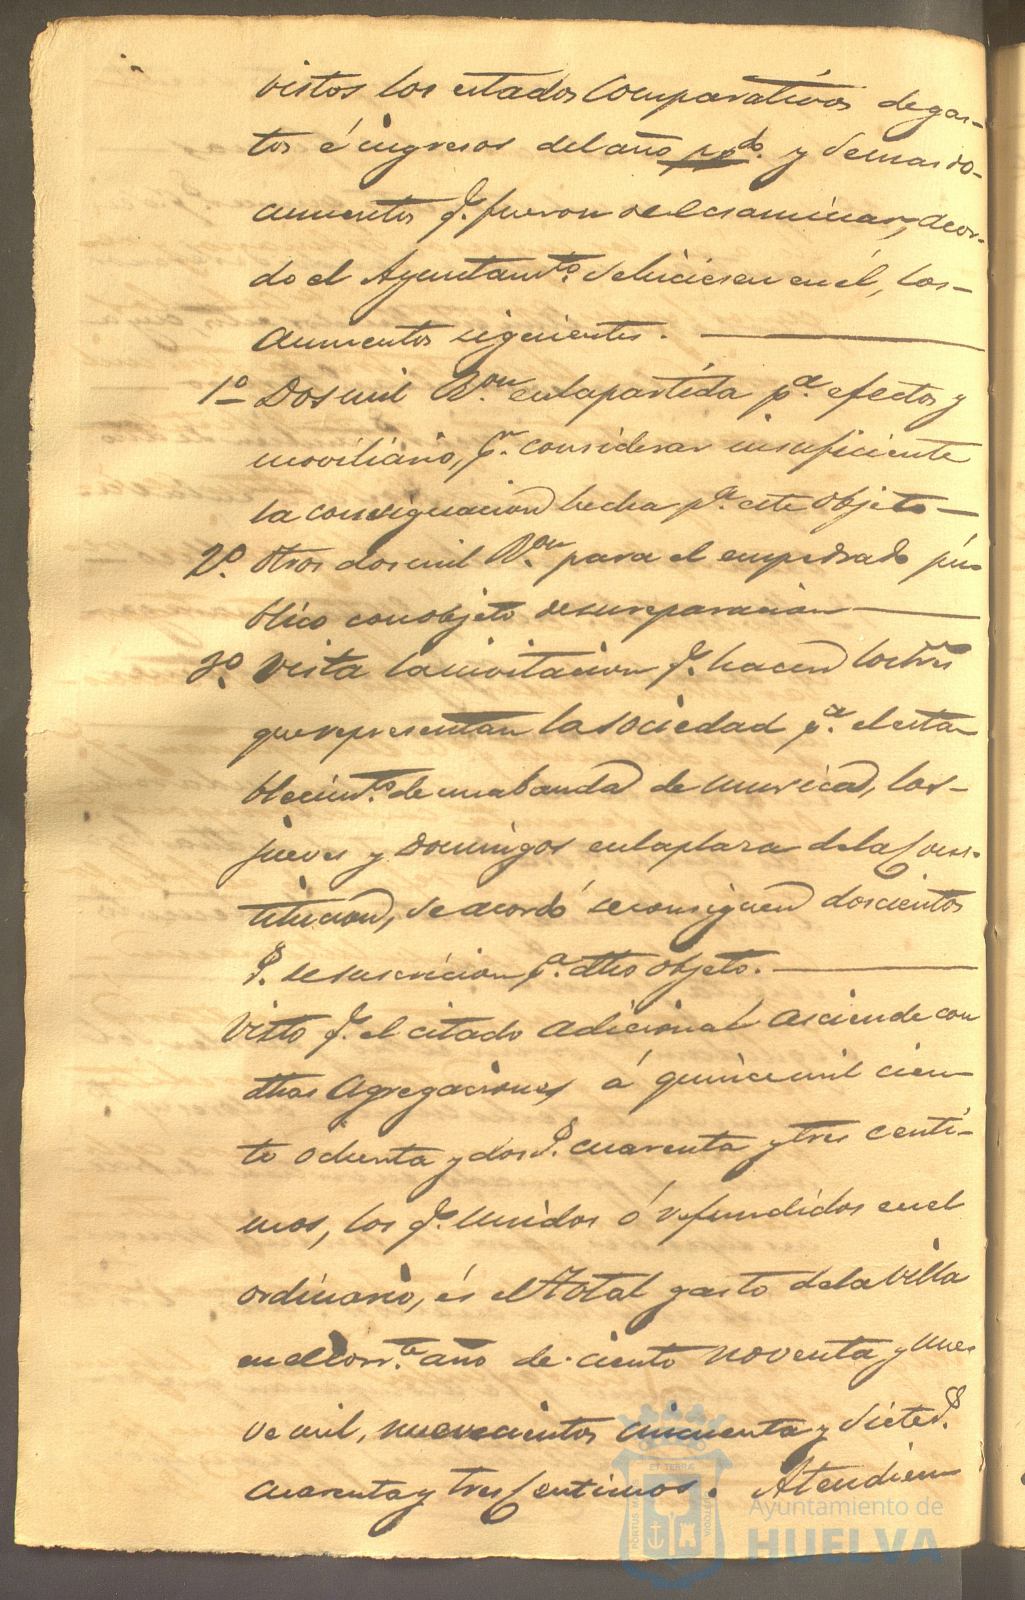 vistos los estados Comparativos de gas-
tos é ingresos del año psdo. y demas do-
cumentos q. fueron de ecsaminar, acor-
do el Ayuntamto. se hiciesen en él, los
aumentos siguientes.
1º Dos mil Ron. en la partida pa. efectos y
moviliario, pr. considerar insuficiente
la consignacion hecha pa. este objeto
2º. Otros dos mil Ron. para el empedrado pú-
blico con objeto de su reparacion
3º. Vista la invitacion q. hacen los Sres
que representan la sociedad pa. el esta
blecimto. de una banda de musica, los
jueves y Domingos en la plaza de la Cons-
titucion, se acordó se consignen doscientos
r. de suscricion pa. dho objeto.
Visto q. el citado adicional asciende con
dhas agregaciones á quince mil cien-
to ochenta y dos r. cuarenta y tres centi-
mos, los q. unidos ó refundidos en el
ordinario, és el total gasto de la villa
en el corrte. año de ciento noventa y nue-
ve mil, nuevecientos cincuenta y siete r.
cuarenta y tres Centimos. Atendien
Ayuntamiento de
HUELVA